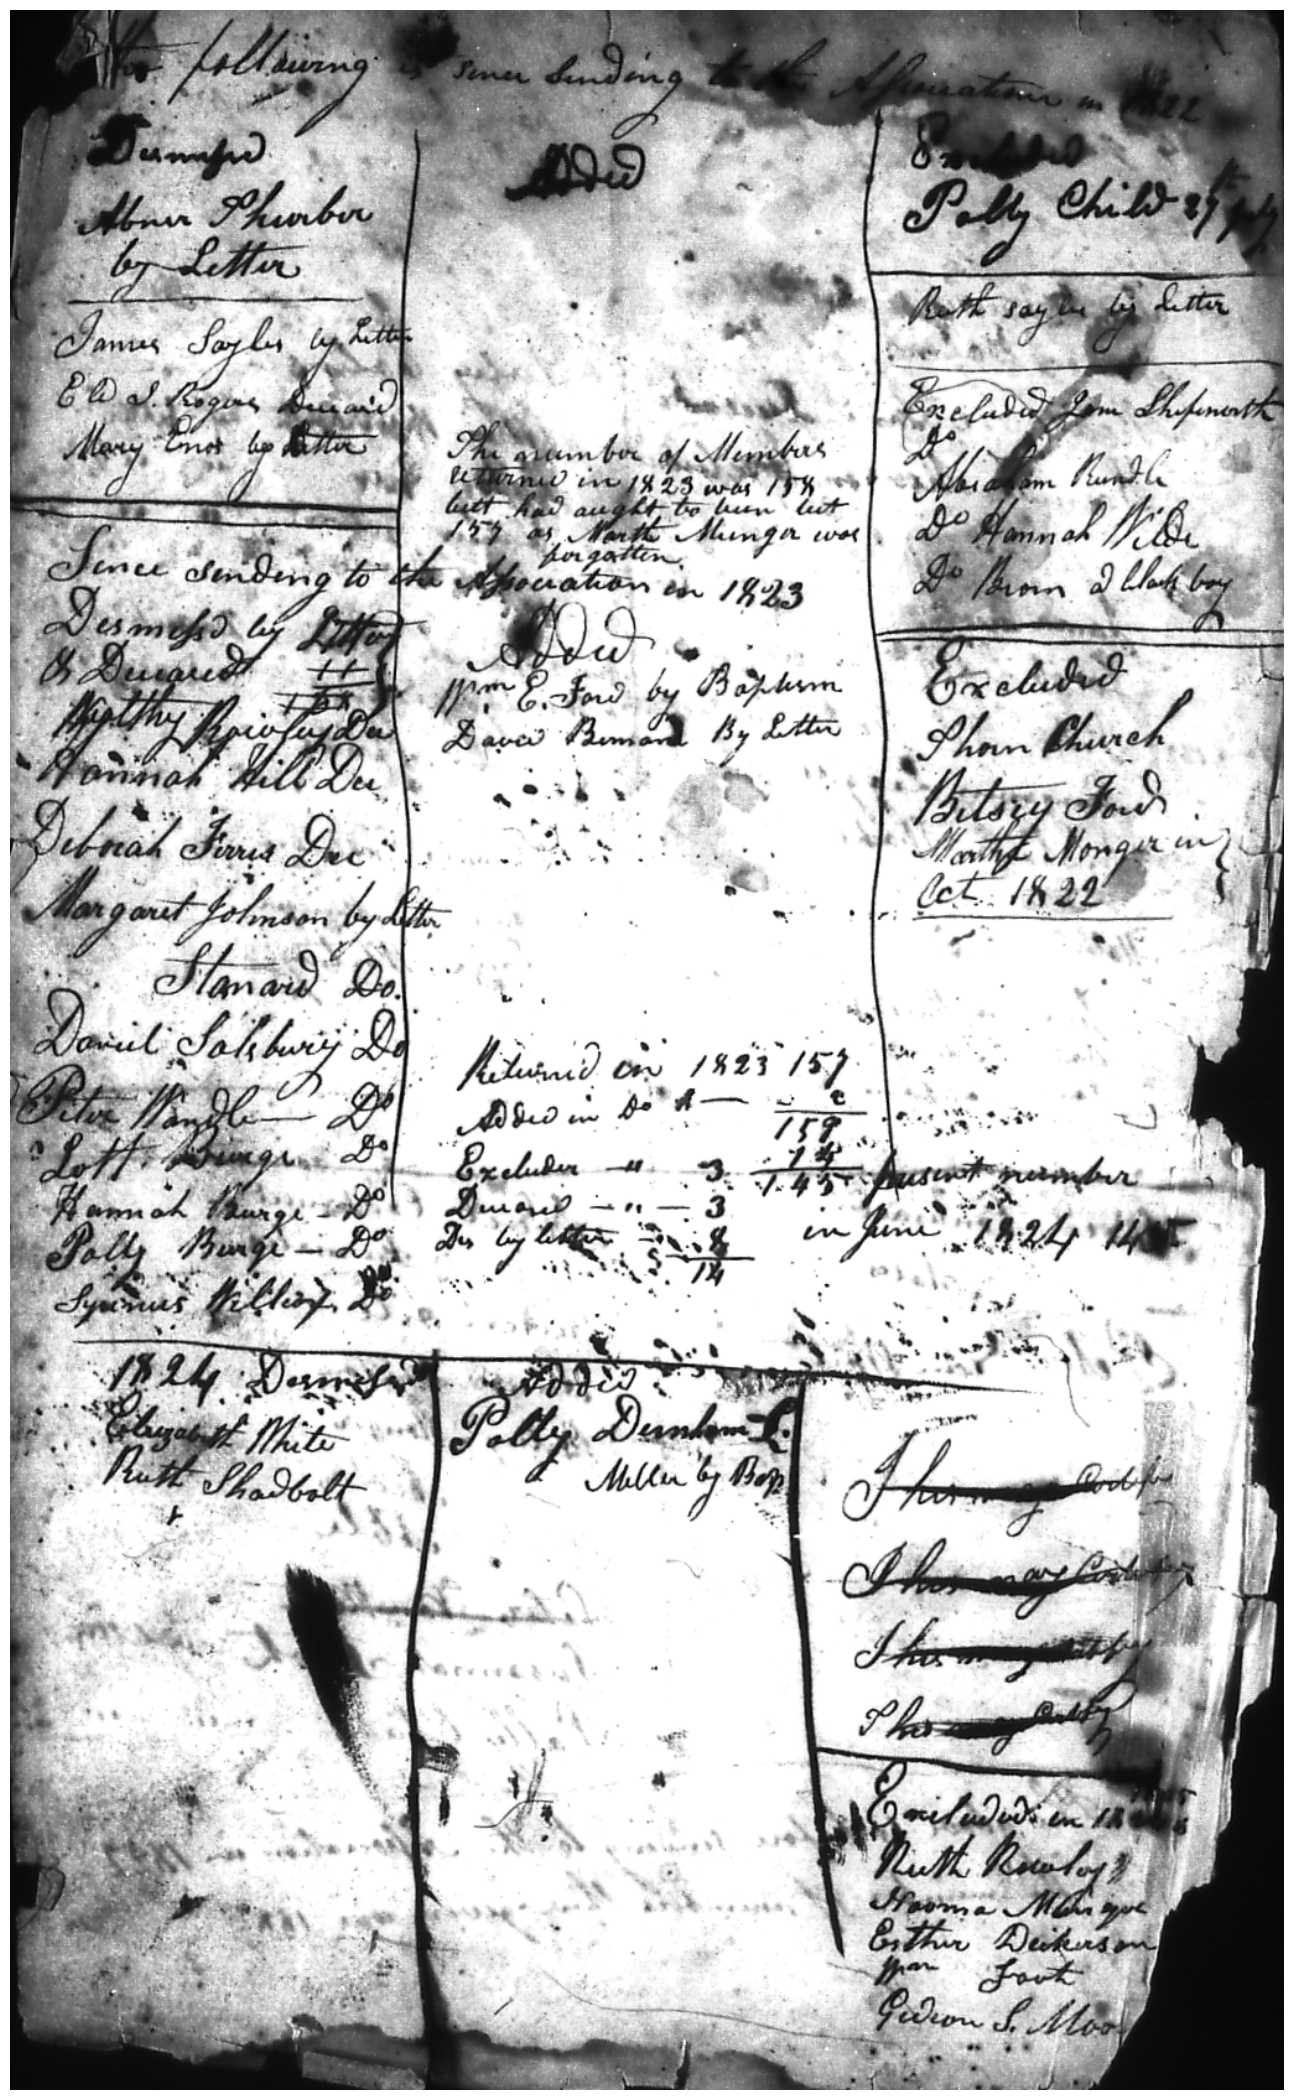 following is since sending to the Association in 1822
Desmissed
Abner Thurber
by Letter
James Sayles by Letter
Eld S. Rogers Deceasd
Mary Enos by Letter
Added
The number of Members
returned in 1823 was 158
but had aught to been but
157 as Marth Munger was
forgotten
Excluded
Polly Child 27th July
Ruth sayles by Letter
Excluded Jane
Do
Abraham Rundle
Do Hannah Wilde
Do Brom a black boy
Since sending to the Association in 1823
Desmissd by Letter
or Deceased
Dec
Hannah Hill Dec
Deborah Ferris Dec
Margaret Johnson by Letter
Stanard Do.
Daniel Salsbury Do
Peter Wandle — Do
Lott Burge Do
Hannah Burge — Do
Polly Burge — Do
Do
Added
Wm E. Ford by Baptism
David By Letter
Returned in 1823 157
Added in Do — 2
159
14
Excluded — " 3 145 present number
Deceased — " — 3 in June 1824 145
Des by letter — 8
14
Excluded
Church
Betsey Ford
Martha Monger in
Oct 1822
1824 Desmissd
Elizabeth White
Ruth Shadbolt
Added
Polly Dunham
Miller by Bap
This may
This may
This may
This may
Excluded in
Ruth Rowley
Naoma
Esther Dickerson
Wm Foot
Gideon S. Moo